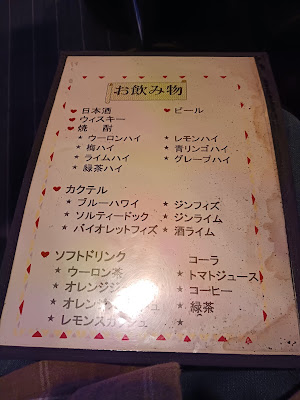 お飲み物
♥日本酒 ♥ビール
♥ウィスキー
♥焼 酎
★ ウーロンハイ ★ レモンハイ
★ 梅ハイ ★ 青リンゴハイ
★ ライムハイ ★ グレープハイ
★ 緑茶ハイ
♥ カクテル
★ ブルーハワイ ★ ジンフィズ
★ ソルティードック ★ ジンライム
★ バイオレットフィズ ★ 酒ライム
♥ ソフトドリンク コーラ
★ ウーロン茶 ★ トマトジュース
★ オレンジジ ★ コーヒー
★ オレン ュ ★ 緑茶
★ レモンスカッシュ ★